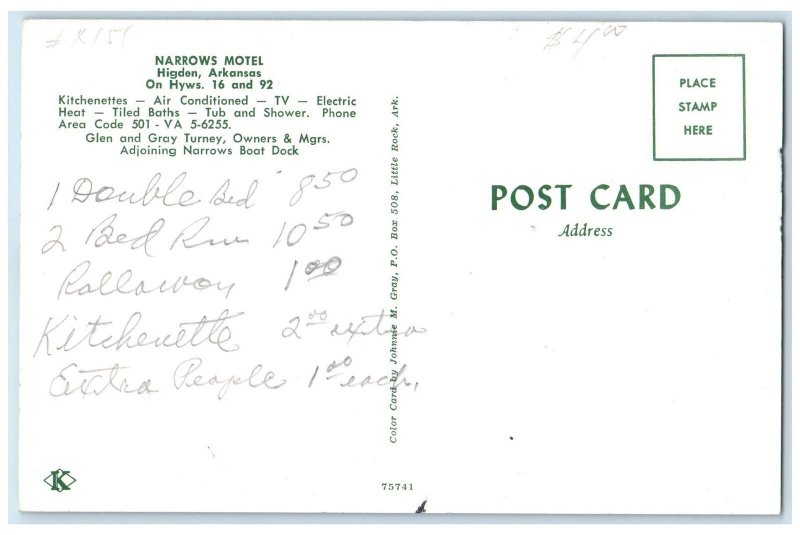 $4.00
NARROWS MOTEL
Higden, Arkansas
On Hyws. 16 and 92
Kitchenettes — Air Conditioned — TV — Electric
Heat — Tiled Baths — Tub and Shower. Phone
Area Code 501 - VA 5-6255.
Glen and Gray Turney, Owners & Mgrs.
Adjoining Narrows Boat Dock
1 Double Bed 8 50
2 Bed Rm 10 50
Rollaway 1 00
Kitchenette 2 00 extra
Extra People 1 00 each.
K
Color Card by Johnnie M. Gray, P.O. Box 508, Little Rock, Ark.
75741
PLACE
STAMP
HERE
POST CARD
Address